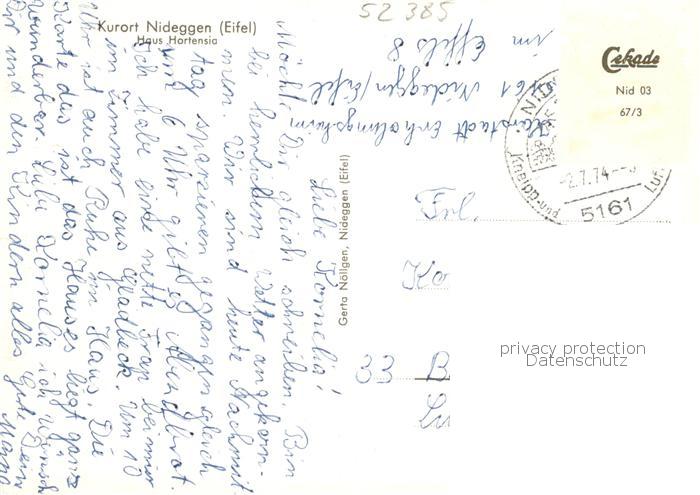 52385
Kurort Nideggen (Eifel)
Haus Hortensia
Cekade
Nid 03
67/3
5161 Nideggen/Eifel
im Effels 8
NID
Kneipp-und
Luf
-2.7.74--8
5161
Gerta Nöllgen, Nideggen (Eifel)
Liebe Kornelia!
Möchte Dir gleich schreiben. Bin
bei herrlichem Wetter angekom-
men. Wir sind heute Nachmit-
tag spazieren gegangen gleich
um 6 Uhr gibt es Abendbrot.
Ich habe eine nette Frau bei mir
im Zimmer aus Gladbeck. Um 10
Uhr ist auch Ruhe im Haus. Die
Karte das ist das Haus es liegt ganz
wunderbar. Liebe Kornelia ich wünsche
Dir und den Kindern alles Gute Deine
Mama
Frl.
Ko
33 B
privacy protection
Datenschutz